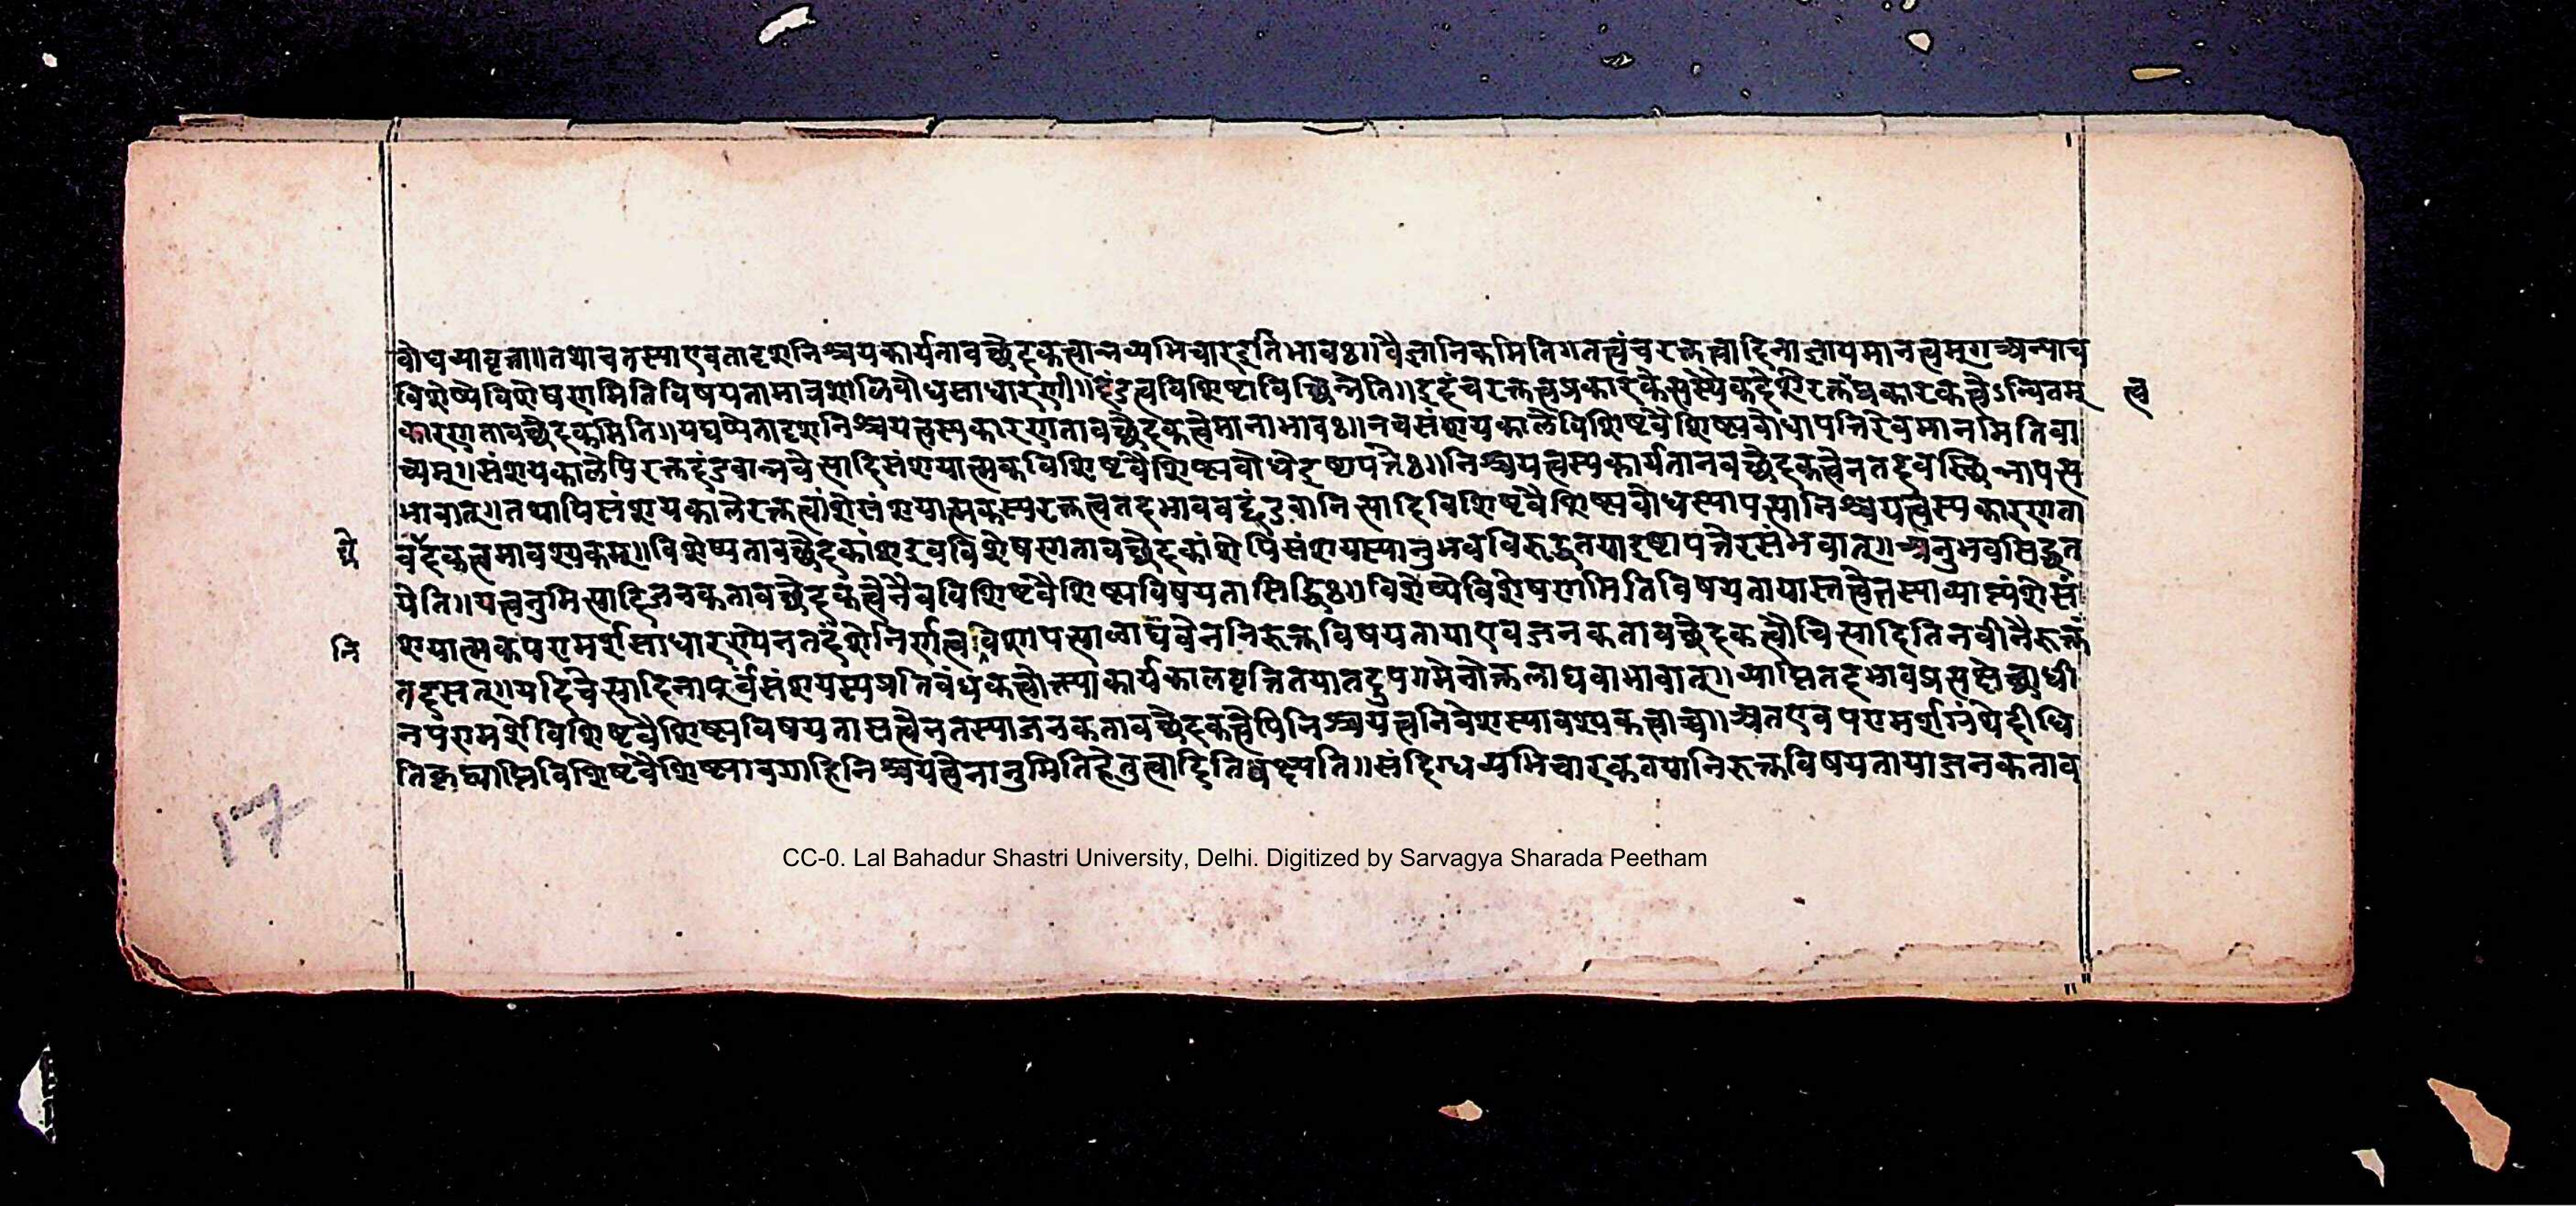 बोधव्यावृत्ता॥तथाचतस्याएवतादृशनिश्चयकार्यतावच्छेदकत्वान्नव्यभिचारइतिभावः॥वैज्ञानिकमितिगतत्वंचरक्तत्वादिनाज्ञायमानत्वम्॥अन्याच
विशेष्येविशेषणमितिविषयतामात्रशालिबोधसाधारणी॥दंडत्वविशिष्टाविच्छिन्नेति॥इदंचरक्तत्वप्रकारकेत्यस्यैकदेशेरक्तत्वप्रकारकत्वेऽन्वितम् त्व
कारणतावच्छेदकमिति॥यद्यप्येतादृशनिश्चयत्वस्यकारणतावच्छेदकत्वेमानाभावः॥नचसंशयकालेविशिष्टवैशिष्ट्यबोधापत्तिरेवमानमितिवा
च्यम्॥संशयकालेपिरक्तदंडवान्नवेत्यादिसंशयात्मकविशिष्टवैशिष्ट्यबोधेइष्टापत्तेः॥निश्चयत्वस्यकार्यतानवच्छेदकत्वेनतदवच्छिन्नापत्त्य
भावात्॥तथापिसंशयकालेरक्तत्वांशेसंशयात्मकस्यरक्तत्वतदभाववद्दंडवानित्यादिविशिष्टवैशिष्ट्यबोधस्यापत्त्यानिश्चयत्वस्यकारणता
छे वदकत्वमावश्यकम्॥विशेष्यतावच्छेदकांशइवविशेषणतावच्छेदकांशेपिसंशयस्यानुभवविरुद्धतयाइष्टापत्तेरसंभवात्॥अनुभवसिद्धत
येति॥यत्त्वनुमित्यादिजनकतावच्छेदकत्वेनैवविशिष्टवैशिष्ट्यविषयतासिद्धिः॥विशेष्येविशेषणमितिविषयतायास्तत्त्वेतस्याव्याप्त्यंशेसं
नि शयात्मकपरामर्शसाधारण्येनतदंशेनिर्णत्वविशापत्त्यालाघवेननिरुक्तविषयतायाएवजनकतावच्छेदकत्वौचित्यादितिनवीनैरुक्तं
तदसत्॥यदिचेत्यादिनापूर्वंसंशयस्यप्रतिबंधकत्वोक्त्याकार्यकालवृत्तितयातदुपगमेनोक्तलाघवाभावात्॥व्याप्तितदभावप्रत्यक्षेच्छाधी
नपरामर्शेविशिष्टवैशिष्ट्यविषयतासत्वेनतस्याजनकतावच्छेदकत्वेपिनिश्चयत्वनिवेशस्यावश्यकत्वाच्च॥अतएवपरामर्शग्रंथेदीधि
तिकृद्व्याप्तिविशिष्टवैशिष्ट्यावगाहिनिश्चयत्वेनानुमितिहेतुत्वादितिवक्ष्यति॥संदिग्धव्यभिचारकतयानिरुक्तविषयतायाजनकताव
17
CC-0. Lal Bahadur Shastri University, Delhi. Digitized by Sarvagya Sharada Peetham